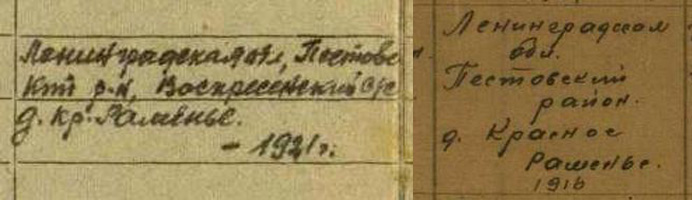 Ленинградская обл, Пестовс
кий р-н, Воскресенский с/с
д. Кр. Раменье.
– 1921 г.
Ленинградская
обл.
Пестовский
район.
д. Красное
Раменье.
1916